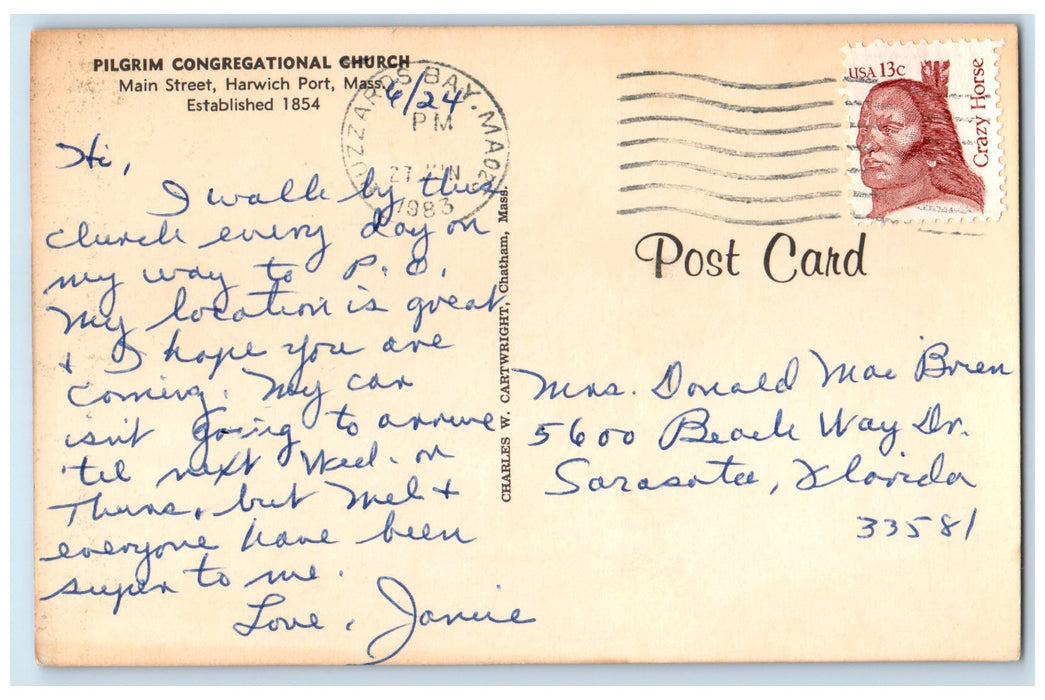 PILGRIM CONGREGATIONAL CHURCH
Main Street, Harwich Port, Mass.
Established 1854
6/24
Hi,
I walk by this
church every day on
my way to P.O.
My location is great
+ I hope you are
coming. My car
isn't going to arrive
'til next Wed. or
Thurs, but Mel +
everyone have been
super to me.
Love, Janie
BUZZARDS BAY, MA 02
PM
27 JUN
1983
CHARLES W. CARTWRIGHT, Chatham, Mass.
USA 13c
Crazy Horse
Post Card
Mrs. Donald Mac Brien
5600 Beach Way Dr.
Sarasota, Florida
33581